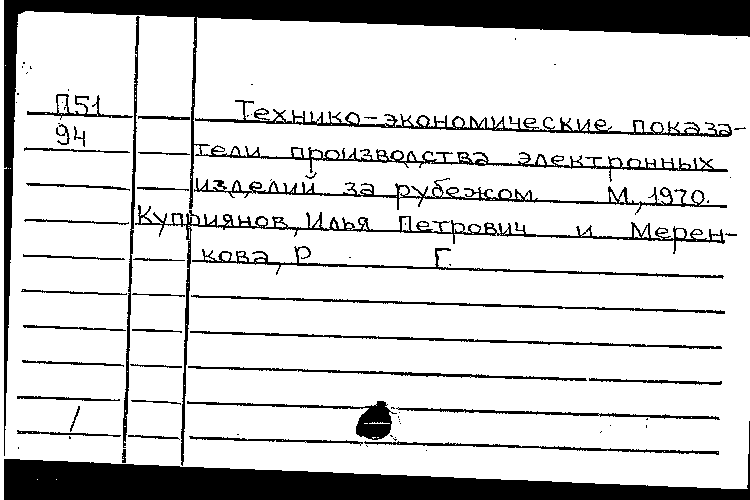 П51 Технико-экономические показа-
94 тели производства электронных
изделий за рубежом. М., 1970.
Куприянов, Илья Петрович и Мерен-
кова, Р Г.
/